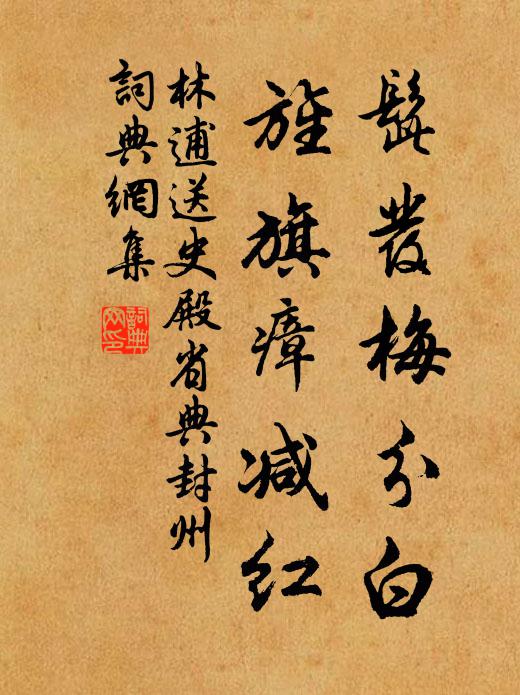 髭发梅分白
旌旗瘴减红
林逋送史殿省典封州
詞典網集
詞典網印